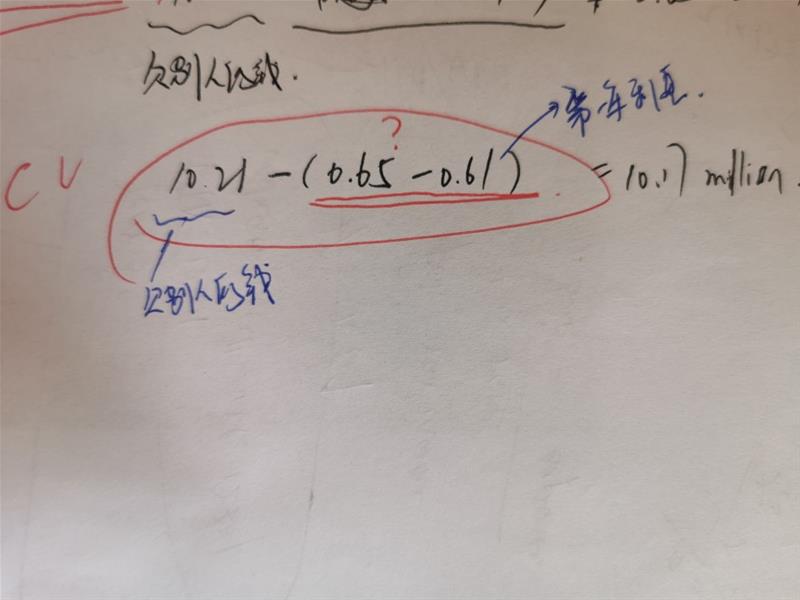 欠别人的钱.
?
第一年利息.
CV 10.21 - (0.65 - 0.61) = 10.17 million.
欠别人的钱